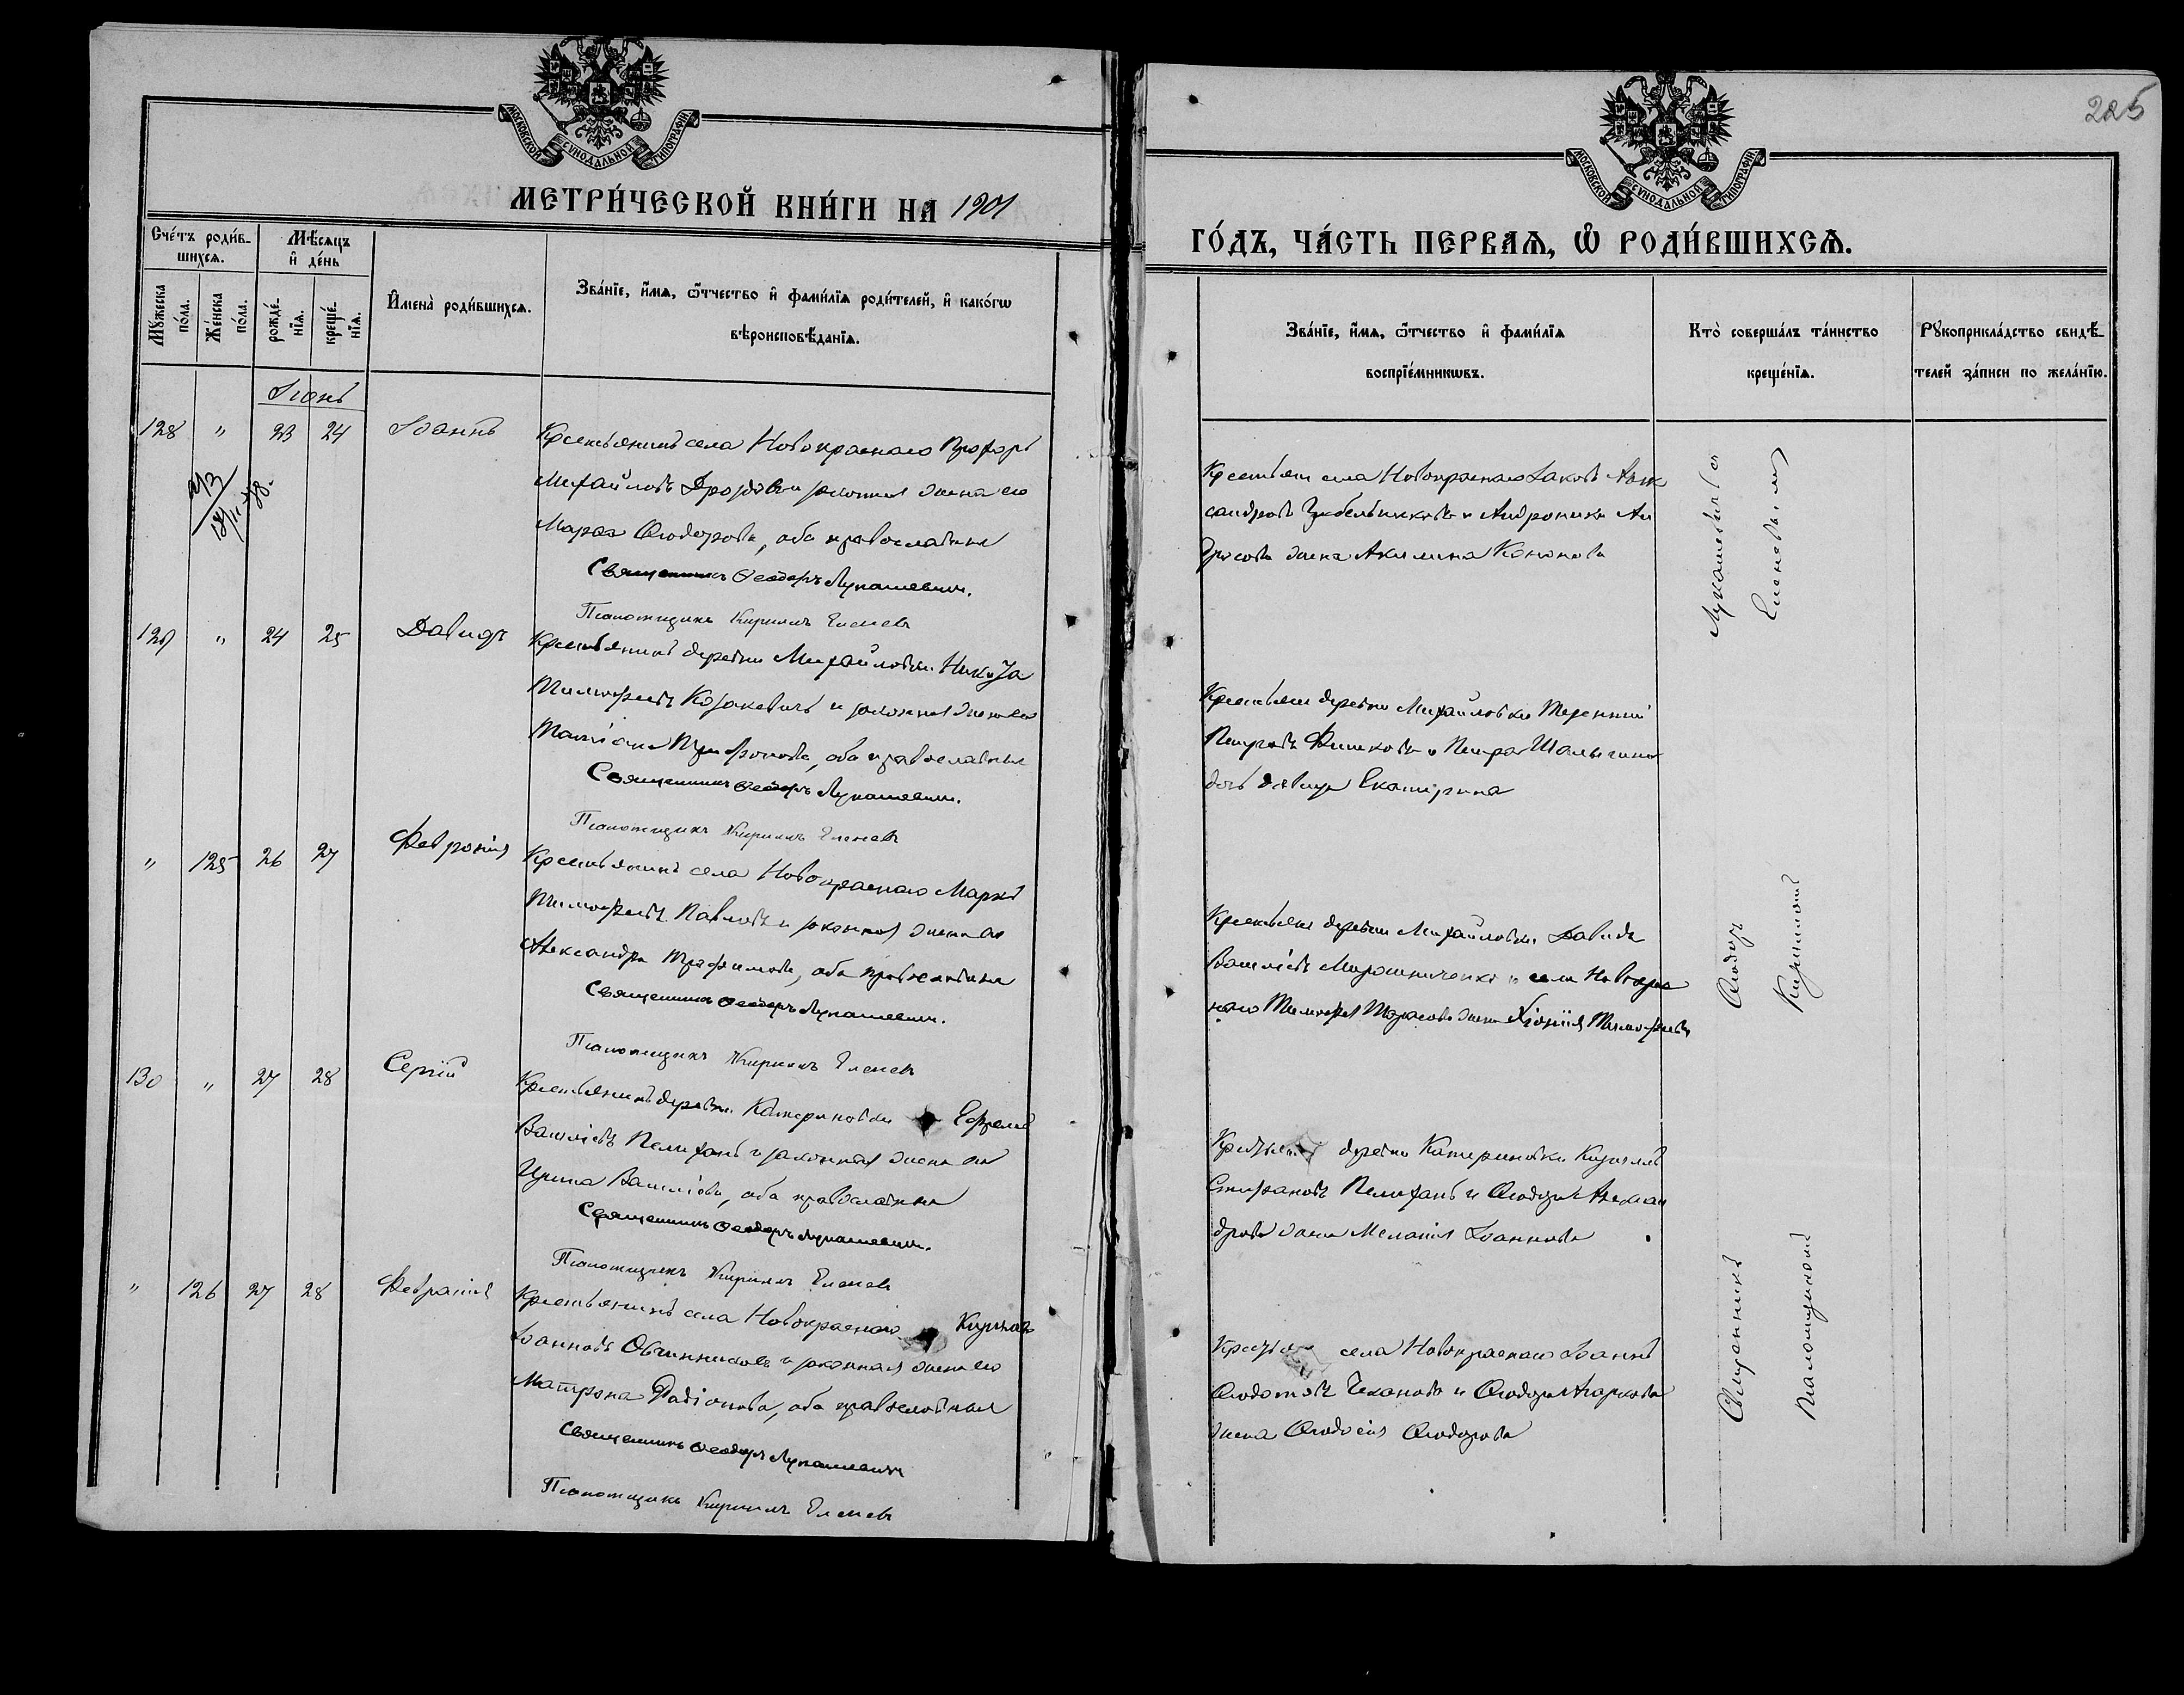 225
МОСКОВСКОЙ СѴНОДАЛЬНОЙ ТИПОГРАФІИ
МОСКОВСКОЙ СѴНОДАЛЬНОЙ ТИПОГРАФІИ
МЕТРИ́ЧЕСКОЙ КНИ́ГИ НА 1901
ГО́ДЪ, ЧА́СТЬ ПЕРВАѦ, Ѿ РОДИ́ВШИХСѦ.
Сче́тъ роди́в-
шихсѧ.
Мꙋ́жеска по́ла.
Же́нска по́ла.
Мѣ́сѧцъ
и҆ де́нь
рожде́-нїѧ.
креще́-нїѧ.
И҆мена̀ роди́вшихсѧ.
Зва́нїе, и҆́мѧ, ѻ҆́тчество и҆ фами́лїѧ роди́телей, и҆ како́гѡ
вѣроисповѣ́данїѧ.
Зва́нїе, и҆́мѧ, ѻ҆́тчество и҆ фами́лїѧ
воспрїе́мникѡвъ.
Кто̀ соверша́лъ та́инство
креще́нїѧ.
Рꙋкоприкла́дство свидѣ́-
телей за́писи по жела́нїю.
Іюнь
128 " 23 24 Іоаннъ
Крестьянинъ села Новокраснаго Прохоръ
Михайловъ Дроздовъ и законная жена его
Марѳа Ѳеодорова, оба православные
Священникъ Ѳеодоръ Лукашевич.
Псаломщикъ Кириллъ Еленевъ
Крестьяне села Новокраснаго Іаковъ Алек
сандровъ и Андроника Ан
жена Акилина Кононова
129 " 24 25 Давидъ
Крестьянинъ деревни Михайловки Никита
Тимоѳеевъ Козакевичъ и законная жена его
Татіана Трифонова, оба православные
Священникъ Ѳеодоръ Лукашевич.
Псаломщикъ Кириллъ Еленевъ
Крестьяне деревни Михайловки Терентій
Петровъ и Петра Шалыгина
дочь девица Екатерина
" 125 26 27 Февронія
Крестьянинъ села Новокраснаго Маркъ
Тимоѳеевъ Павловъ и законная жена его
Александра Трофимова, оба православные
Священникъ Ѳеодоръ Лукашевич.
Псаломщикъ Кириллъ Еленевъ
Крестьяне деревни Михайловки Давидъ
Василіевъ Мирошниченко и села Новокрас
наго Тимоѳея Тарасова жена Хіонія Тимоѳеева
130 " 27 28 Сергій
Крестьянинъ деревни Катериновки Ефремъ
Василіевъ Пелиханъ и законная жена его
Ирина Василіева, оба православные
Священникъ Ѳеодоръ Лукашевич.
Псаломщикъ Кириллъ Еленевъ
Крестьяне деревни Катериновки Кириллъ
Стефановъ Пелиханъ и Ѳеодора Алексан
дрова жена Меланія Іоаннова
" 126 27 28 Февронія
Крестьянинъ села Новокраснаго
Іоанновъ Овчинниковъ и законная жена его
Матрона Родіонова, оба православные
Священникъ Ѳеодоръ Лукашевич
Псаломщикъ Кириллъ Еленевъ
Крестьяне села Новокраснаго Іоаннъ
Ѳеодотовъ Чекановъ и Ѳеодора Маркова
жена Ѳеодосія Ѳеодорова
Священникъ Ѳеодоръ Лукашевичъ съ
Псаломщикомъ Кирилломъ Еленевымъ